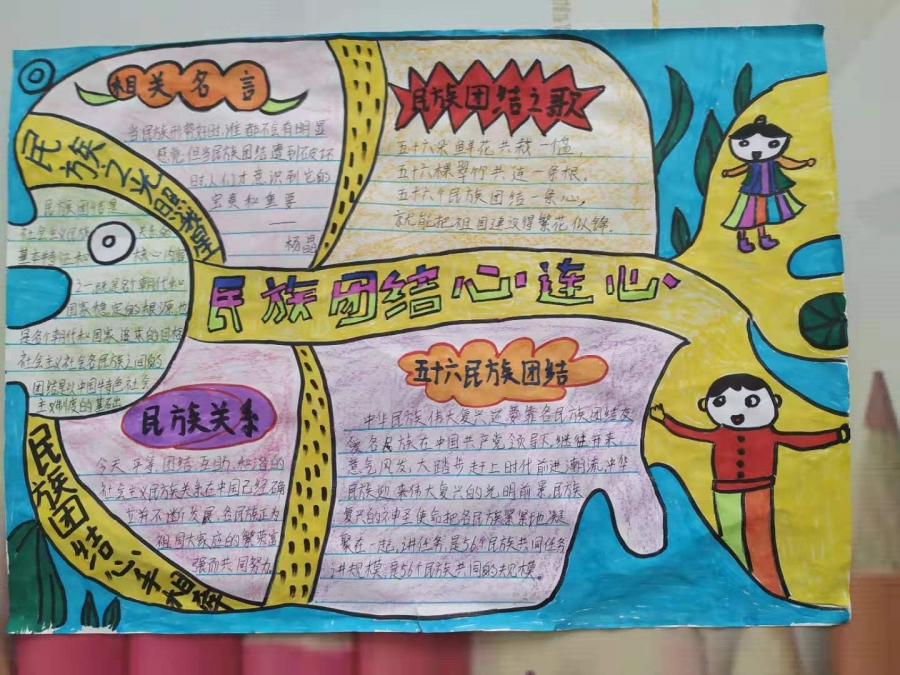 相关名言
当民族形势好时,谁都不会有明显
感觉,但当民族团结遭到破坏
时,人们才意识到它的
宝贵和重要
——杨晶
民族团结之歌
五十六朵鲜花共栽一盆,
五十六棵翠竹共连一条根,
五十六个民族团结一条心,
就能把祖国建设得繁花似锦.
民族之光照满
民族团结是
社会主义民族
基本特征和核心内容
之一,既是各个朝代和
国家稳定的根源,也
是各个朝代和国家追求的目标
社会主义社会各民族之间的
团结是以中国特色社会
主义制度的基础
民族团结心·连心·
民族关系
今天,平等,团结,互助,和谐的
社会主义民族关系在中国已经确
立并不断发展,各民族正为
祖国大家庭的繁荣富
强而共同努力
民族团结心手相牵
五十六民族团结
中华民族伟大复兴还要靠各民族团结友
爱各民族在中国共产党领导下,继往开来,
意气风发,大踏步赶上时代前进潮流,中华
民族迎来伟大复兴的光明前景民族
复兴的神圣使命把各民族紧紧地凝
聚在一起,讲任务,是56个民族共同任务
讲规模,是56个民族共同的规模.